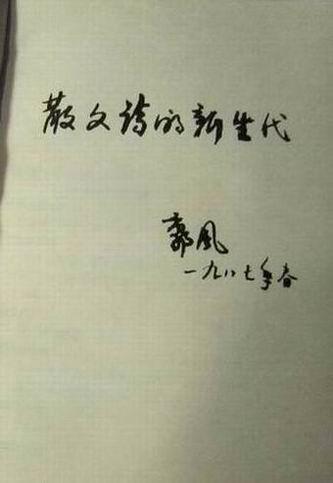 散文诗的新生代
郭风
一九八七年春